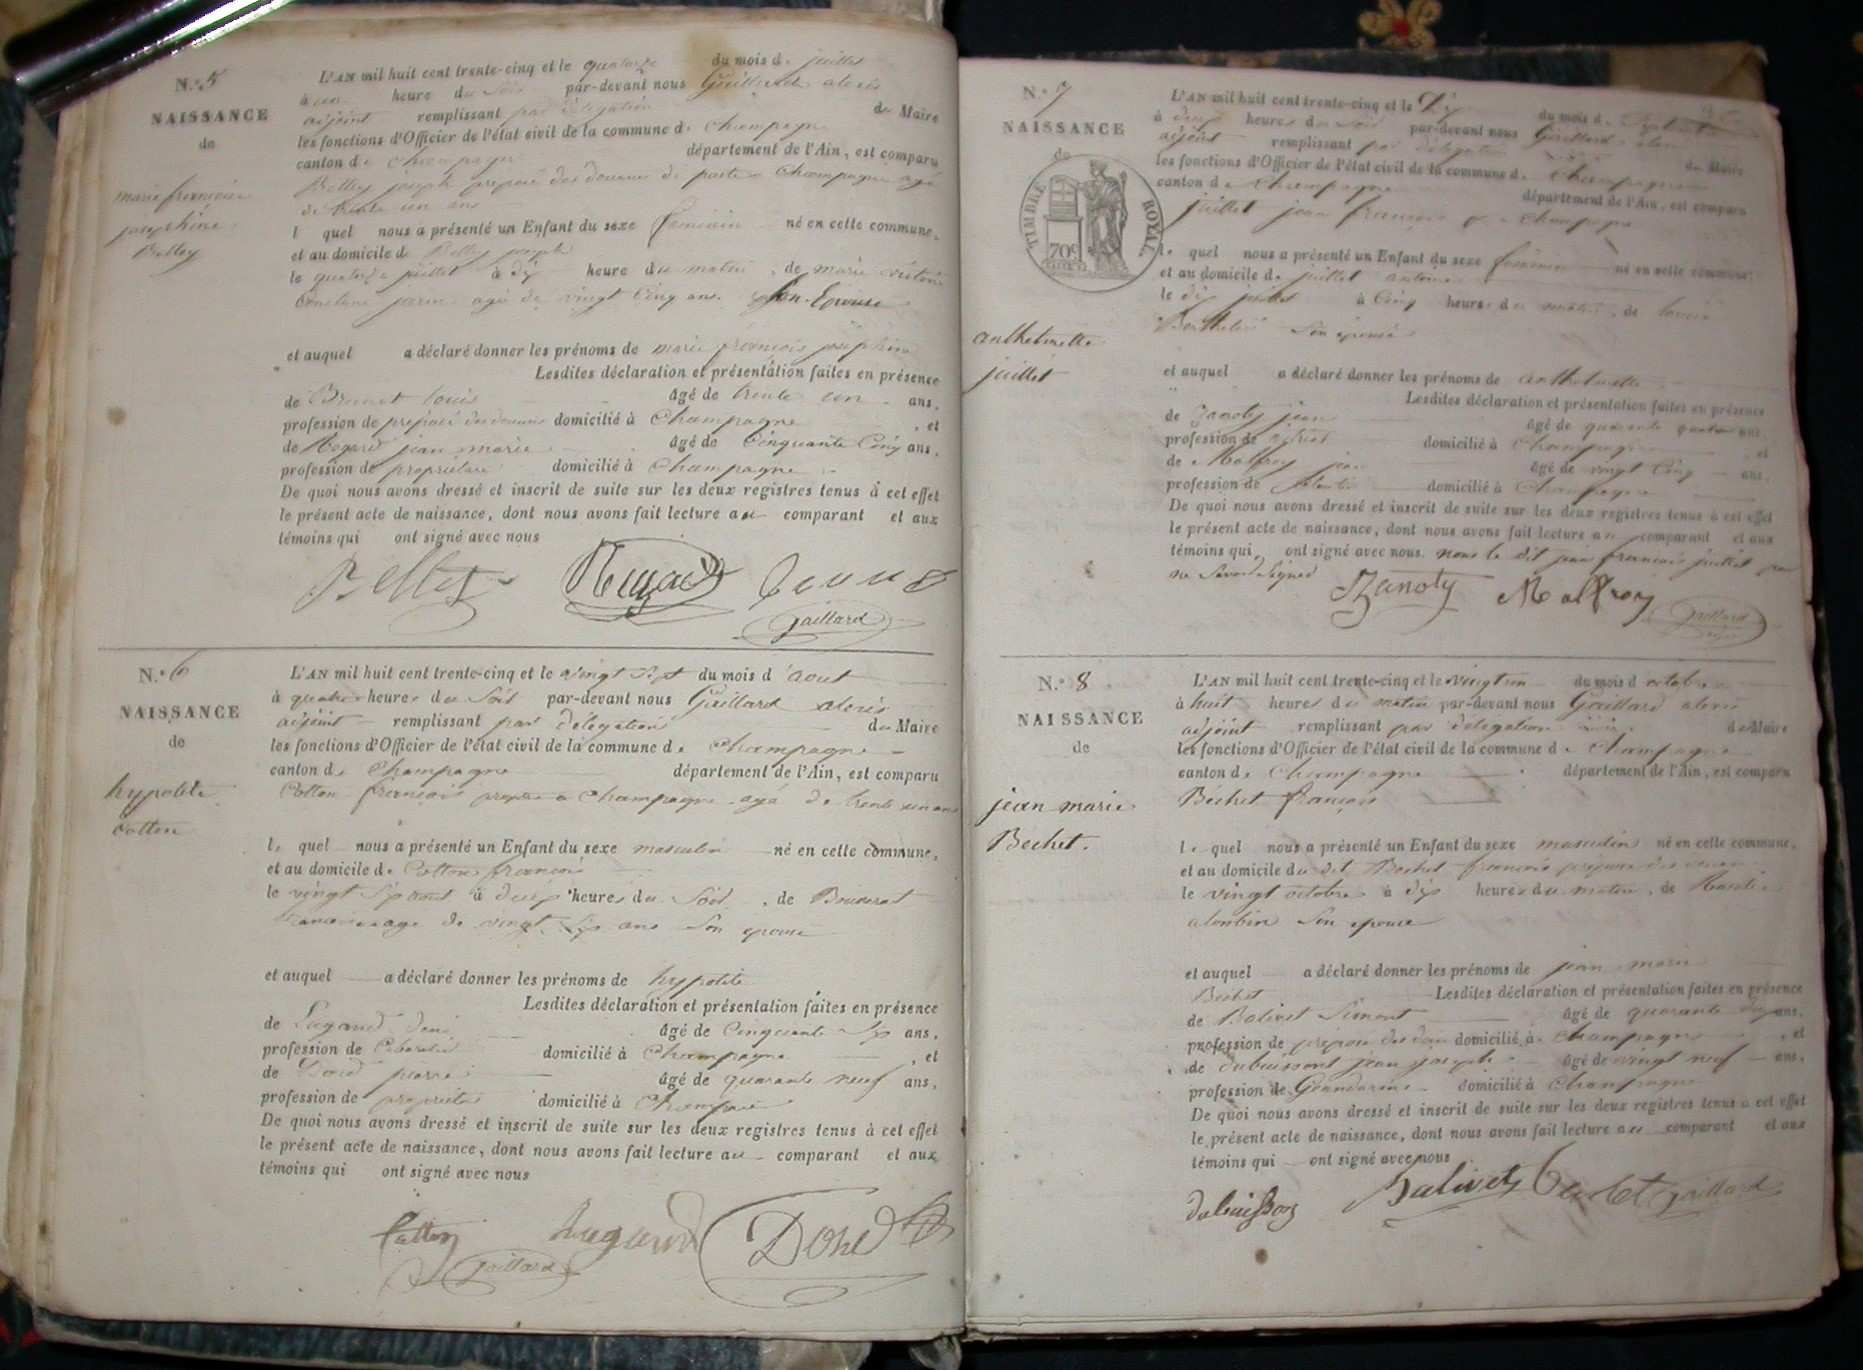 N.° 5
NAISSANCE
de
marie françoise
josephine
Belley
L'AN mil huit cent trente-cinq et le quatorze du mois de juillet
à un heure du soir par-devant nous Gaillard alexis
adjoint remplissant par délégation du Maire
les fonctions d'Officier de l'état civil de la commune de Champagne
canton de Champagne département de l'Ain, est comparu
Belley joseph préposé des douanes de poste a Champagne agé
de trente un ans
l quel nous a présenté un Enfant du sexe feminin né en cette commune,
et au domicile de Belley joseph
le quatorze juillet à dix heure du matin, de marie victoire
agé de vingt Cinq ans. son Epouse
et auquel a déclaré donner les prénoms de marie françoise josephine
Lesdites déclaration et présentation faites en présence
de Brunet louis âgé de trente un ans,
profession de préposé des douanes domicilié à Champagne, et
de jean marie âgé de Cinquante Cinq ans,
profession de propriétaire domicilié à Champagne
De quoi nous avons dressé et inscrit de suite sur les deux registres tenus à cet effet
le présent acte de naissance, dont nous avons fait lecture au comparant et aux
témoins qui ont signé avec nous
Belley
Gaillard
N.° 6
NAISSANCE
de
hypolite
Cotton
L'AN mil huit cent trente-cinq et le vingt sept du mois d'aout
à quatre heures du Soir par-devant nous Gaillard alexis
adjoint remplissant par délégation du Maire
les fonctions d'Officier de l'état civil de la commune de Champagne
canton de Champagne département de l'Ain, est comparu
Cotton françois a Champagne agé de trente un ans
le quel nous a présenté un Enfant du sexe masculin né en cette commune,
et au domicile de Cotton françois
le vingt Six aout à deux heures du Soir, de
agé de vingt Six ans Son epouse
et auquel a déclaré donner les prénoms de hypolite
Lesdites déclaration et présentation faites en présence
de Lugand Denis âgé de Cinquante Six ans,
profession de domicilié à Champagne, et
de pierre âgé de quarante neuf ans,
profession de propriétaire domicilié à Champagne
De quoi nous avons dressé et inscrit de suite sur les deux registres tenus à cet effet
le présent acte de naissance, dont nous avons fait lecture au comparant et aux
témoins qui ont signé avec nous
Cotton Lugand
Gaillard
N.° 7
NAISSANCE
de
TIMBRE ROYAL
70c
anthelmette
juillet
L'AN mil huit cent trente-cinq et le Dix du mois de
à deux heures du soir par-devant nous Gaillard alexis
adjoint remplissant par délégation du Maire
les fonctions d'Officier de l'état civil de la commune de Champagne
canton de Champagne département de l'Ain, est comparu
juillet jean françois a Champagne
le quel nous a présenté un Enfant du sexe feminin né en cette commune,
et au domicile de juillet antoine
le dix à Cinq heures du matin, de louise
Berthelier Son épouse
et auquel a déclaré donner les prénoms de anthelmette
Lesdites déclaration et présentation faites en présence
de Zanoty jean âgé de quarante quatre ans,
profession de vitrier domicilié à Champagne, et
de Malfroy jean âgé de vingt Cinq ans,
profession de domicilié à Champagne
De quoi nous avons dressé et inscrit de suite sur les deux registres tenus à cet effet
le présent acte de naissance, dont nous avons fait lecture au comparant et aux
témoins qui ont signé avec nous. non le dit jean françois juillet pour
ne Savoir Signer
Zanoty Malfroy
Gaillard
N.° 8
NAISSANCE
de
jean marie
Bechet.
L'AN mil huit cent trente-cinq et le vingt un du mois d'octobre
à huit heures du matin par-devant nous Gaillard alexis
adjoint remplissant par délégation du Maire
les fonctions d'Officier de l'état civil de la commune de Champagne
canton de Champagne département de l'Ain, est comparu
Bechet françois
le quel nous a présenté un Enfant du sexe masculin né en cette commune,
et au domicile du dit Bechet françois préposé des douanes
le vingt octobre à dix heures du matin, de
Son epouse
et auquel a déclaré donner les prénoms de jean marie
Bechet Lesdites déclaration et présentation faites en présence
de Balivet Simont âgé de quarante ans,
profession de préposé des dou domicilié à Champagne, et
de dubuisson jean joseph âgé de vingt neuf ans,
profession de Geandarme domicilié à Champagne
De quoi nous avons dressé et inscrit de suite sur les deux registres tenus à cet effet
le présent acte de naissance, dont nous avons fait lecture au comparant et aux
témoins qui ont signé avec nous
dubuisson Balivet Bechet Gaillard